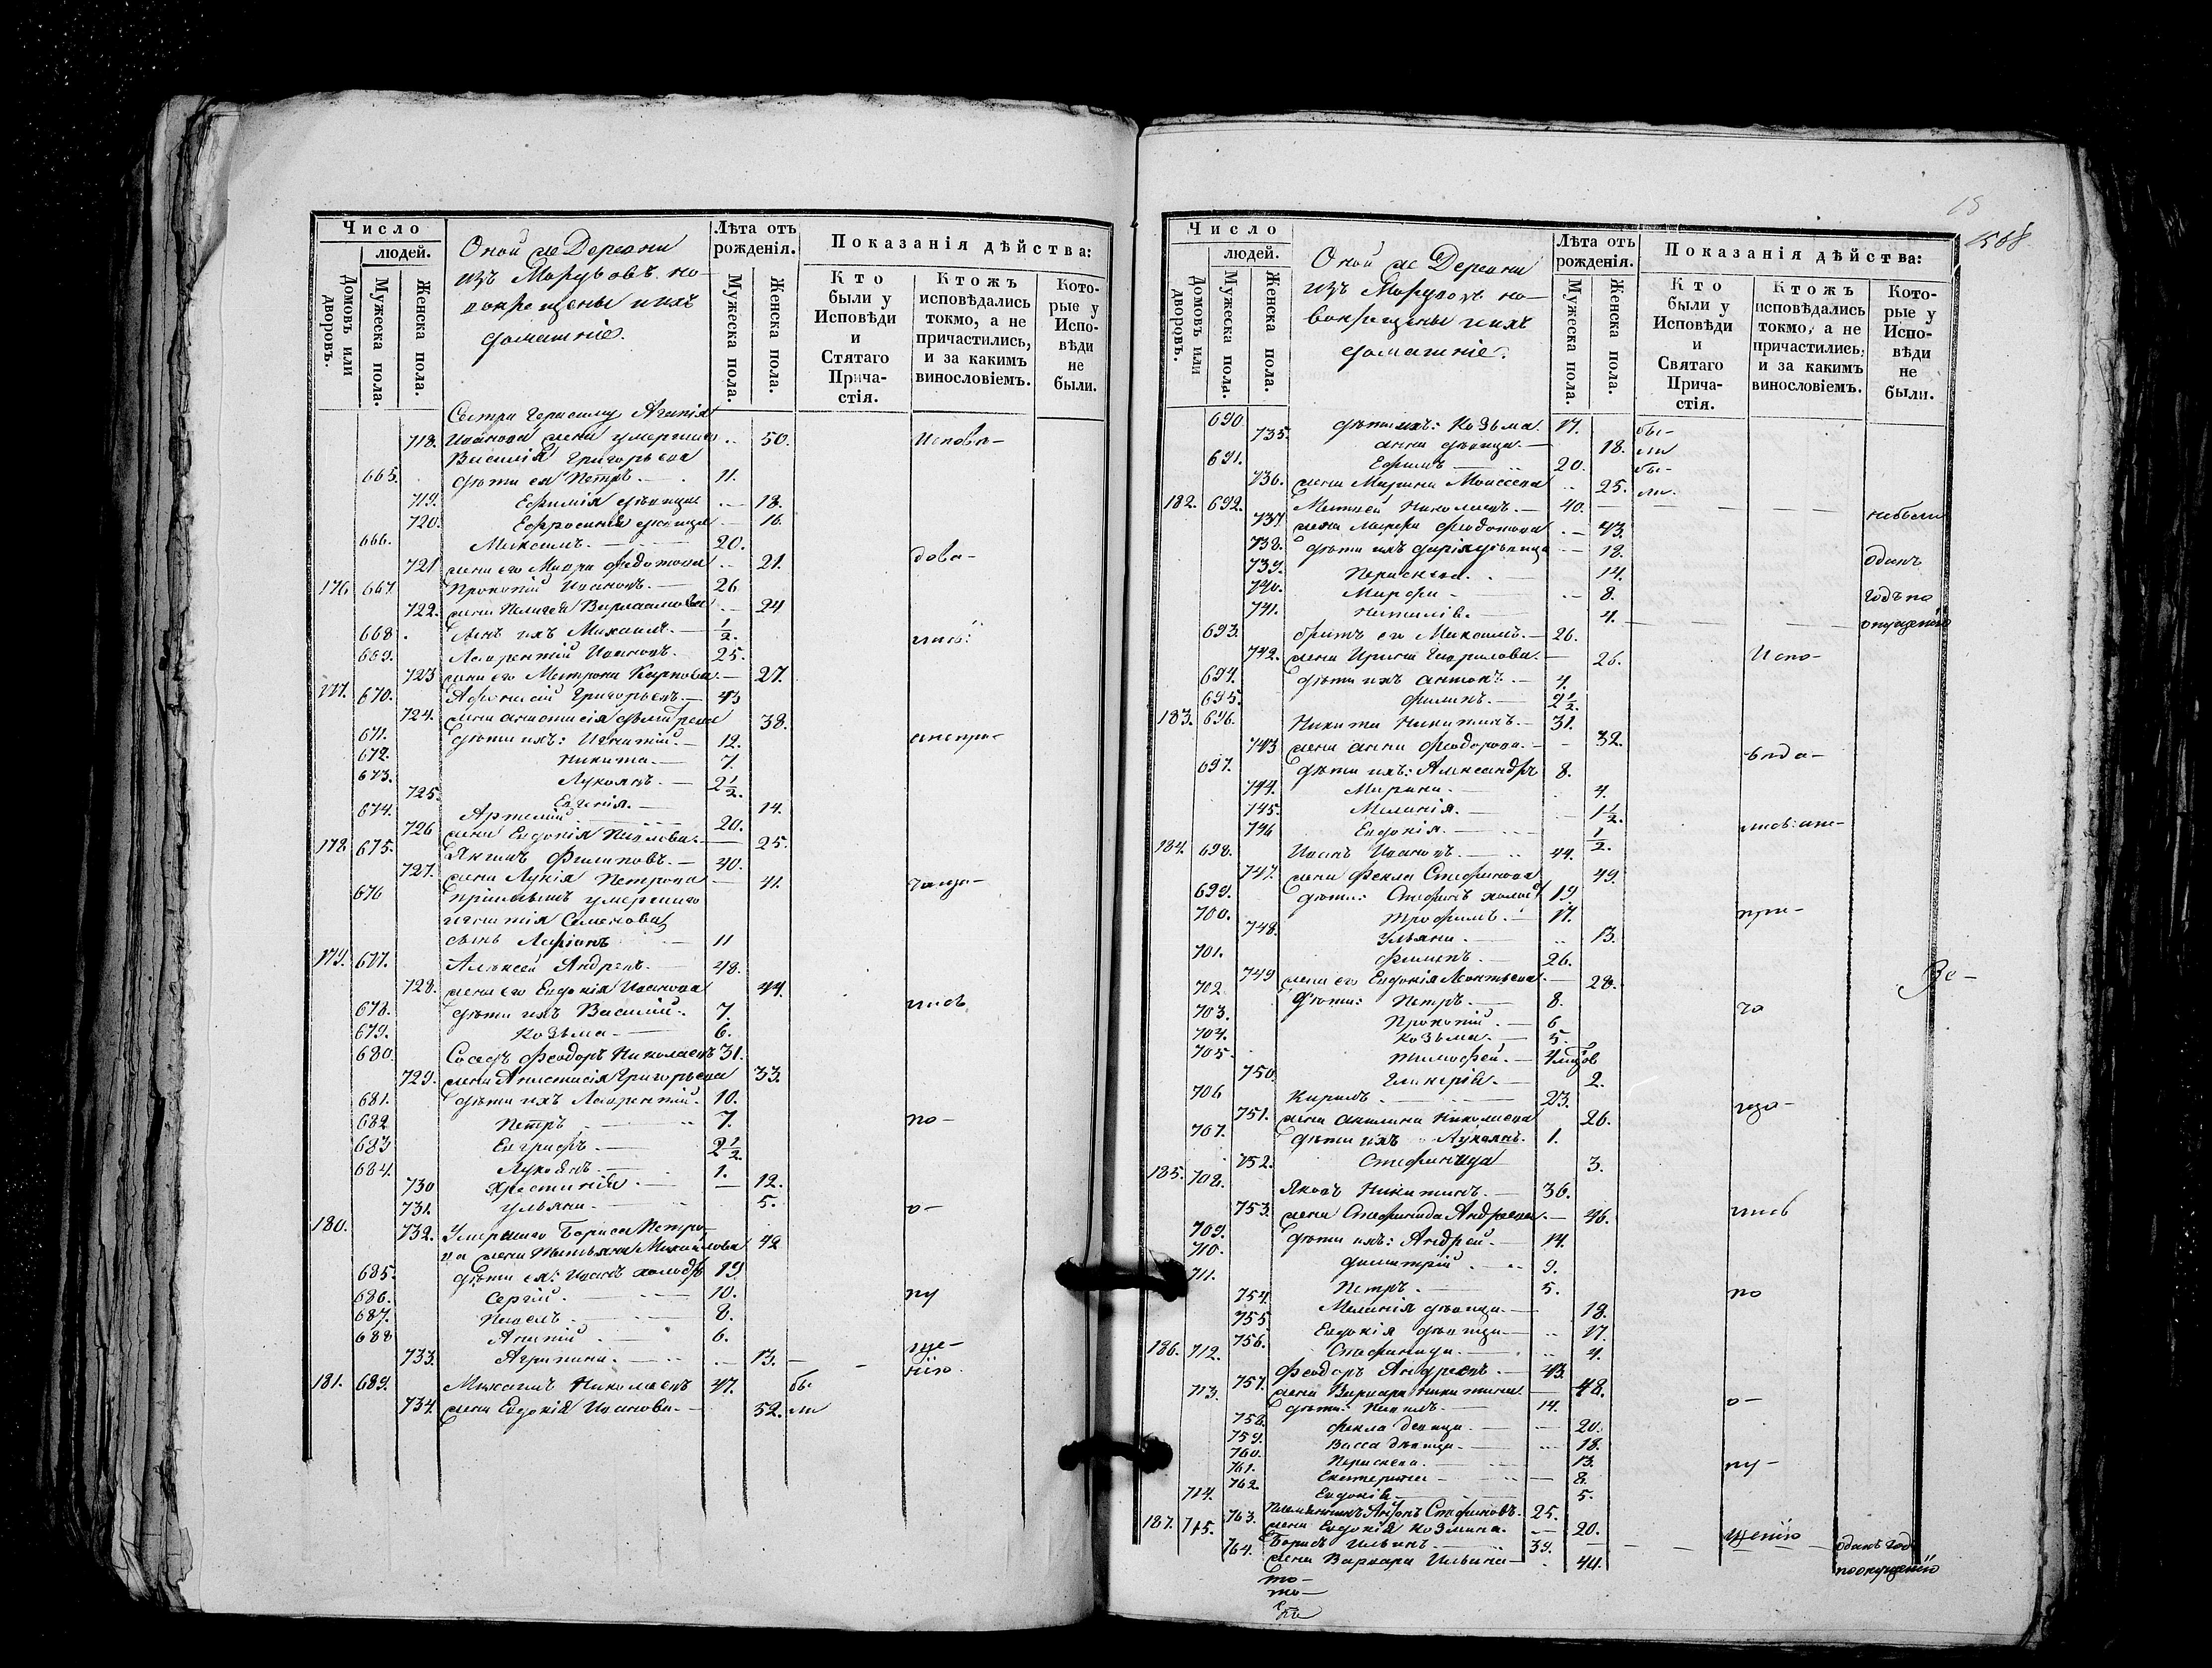 Число
людей.
Домовъ или дворовъ.
Мужеска пола.
Женска пола.
Оной же Деревни
изъ Мордовъ но-
вокрещены и ихъ
домашніе.
Лѣта отъ
рожденія.
Мужеска пола.
Женска пола.
Показанія дѣйства:
Кто
были у
Исповѣди
и
Стятаго
Прича-
стія.
Ктожъ
исповѣдались
токмо, а не
причастились,
и за какимъ
винословіемъ.
Кото-
рые у
Испо-
вѣди
не
были.
718. Ивановa жена умершаго 50. Исповѣ-
Василія Григорьева
665. дѣти ея Петръ. 11.
719. Ефимія дѣвица 18.
720. Ефросинія дѣвица 16.
666. Максимъ. 20.
721 жена его Мавра Федотова 21. дова-
176 667. Прокопій Ивановъ. 26
722. жена Пелагея Варлаамова 24
668. сынъ ихъ Михаилъ. 1/2.
лись:
669. Лаврентій Ивановъ. 25.
723 жена его Матрона Карпова 27.
177. 670. Афанасій Григорьевъ. 43
724. жена Анастасія Дмитрева 38.
671. дѣти ихъ: Игнатій. 12. а не при-
672. Никита. 7.
673. Лукоянъ. 2 1/2.
725. Евгенія. 14.
674. Артемій 20.
726 жена Евдокія Павлова. 25.
178 675. Филиповъ. 40.
727. жена Лукія Петрова 41. чаща-
676 умершаго
игнатія Семенова
сынъ Ларіонъ 11
179. 677. Алексей Андревъ. 48.
728. жена его Евдокія Иванова 44.
678. дѣти ихъ Василій. 7. лись
679. Козьма. 6.
680. Сосѣдъ Феодоръ Николаевъ 31.
729. жена Анастасія Григорьева 33.
681. дѣти ихъ Лаврентій. 10.
682 Петръ 7. по-
683 Евграфъ. 2 1/2.
684. Лукоянъ. 1.
730 Хрестинія. 12.
731. Ульяна. 5. о-
180. 732. Умершаго Бориса Петро-
ва жена Татьяна Михайлова 42
685. дѣти ея: Иванъ холостъ 19.
686. Сергій. 10. пу
687. Павелъ. 8.
688 6.
ще-
733. Агрипина. 13.
нію.
181. 689. Михаилъ Николаевъ 47. бы
734. жена Евдокія Иванова. 52. ли
1508
Число
людей.
Домовъ или дворовъ.
Мужеска пола.
Женска пола.
Оной же Деревни
изъ Мордовъ но-
вокрещены и ихъ
домашніе.
Лѣта отъ
рожденія.
Мужеска пола.
Женска пола.
Показанія дѣйства:
Кто
были у
Исповѣди
и
Святаго
Прича-
стія.
Ктожъ
исповѣдались
токмо, а не
причастились,
и за какимъ
винословіемъ.
Кото-
рые у
Испо-
вѣди
не
были.
690. дѣти ихъ: Козьма. 17. бы-
735. Анна дѣвица. 18. ли
691. Ефимъ 20. бы-
736. жена Марина Моисеева 25. ли.
182. 692. Матвей Николаевъ. 40. небыли
737 жена Марфа Федотова 43.
738. дѣти ихъ Дарія дѣвица 18. Одинъ
739. Параскева. 14.
740. Марфа 8. годъ по
741. Наталія. 4. опущенію
693. братъ его Михаилъ. 26.
742. жена Ирина Гаврилова. 26. Испо-
694. дѣти ихъ Антонъ. 4.
695. Филипъ. 2 1/2.
183. 696. Никита Никитинъ. 31.
743 жена Анна Феодорова. 32. вѣда-
697. дѣти ихъ: Александръ 8.
744. Марина. 4.
745. Меланія. 1 1/2.
746 Евдокія. 1/2. лись: а не-
184. 698. Иванъ Ивановъ. 44.
747. жена Фекла Стефанова 49.
699. дѣти: Стефанъ холостъ 19.
700. Трофимъ. 17. при-
748. Ульяна. 13.
701. Филипъ. 26.
749 жена его Евдокія Леонтьева. 28.
Во-
702 дѣти: Петръ. 8. ча
703. Прокопій. 6
704. Козьма. 5.
705. Тимофей.
750. Гликерія. 2.
706 Кирилъ. 23.
751. жена Акилина Николаева 26.
707. дѣти ихъ Лукоянъ. 1.
752. Стефанида 3.
185. 708. Яковъ Никитинъ. 36.
753. жена Стефанида Андреева. 46. лись
709. дѣти ихъ: Андрей. 14.
710. Димитрій. 9.
711. Петръ. 5. по
754. Меланія дѣвица. 18.
755 Евдокія дѣвица 17.
756. Стефанида. 4.
186. 712. Феодоръ Андреевъ. 43.
757. жена Варвара Никитина. 48.
713. дѣти: 14. о-
758. Фекла девица. 20.
759. Васса дѣвица. 18.
760. Параскева. 13. пу-
761. Екатерина 8.
762. Евдокія 5.
714. племянникъ Стефановъ. 25.
763. жена Евдокія Козмина. 20. щенію
187. 715. Борисъ Ильинъ. 39. одинъ год
764. жена Варвара Ильина 44. поопущенію